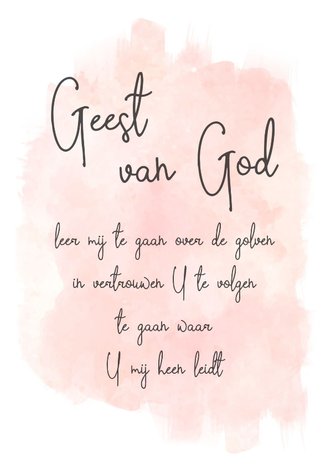 Geest
van God
leer mij te gaan over de golven
in vertrouwen U te volgen
te gaan waar
U mij heen leidt